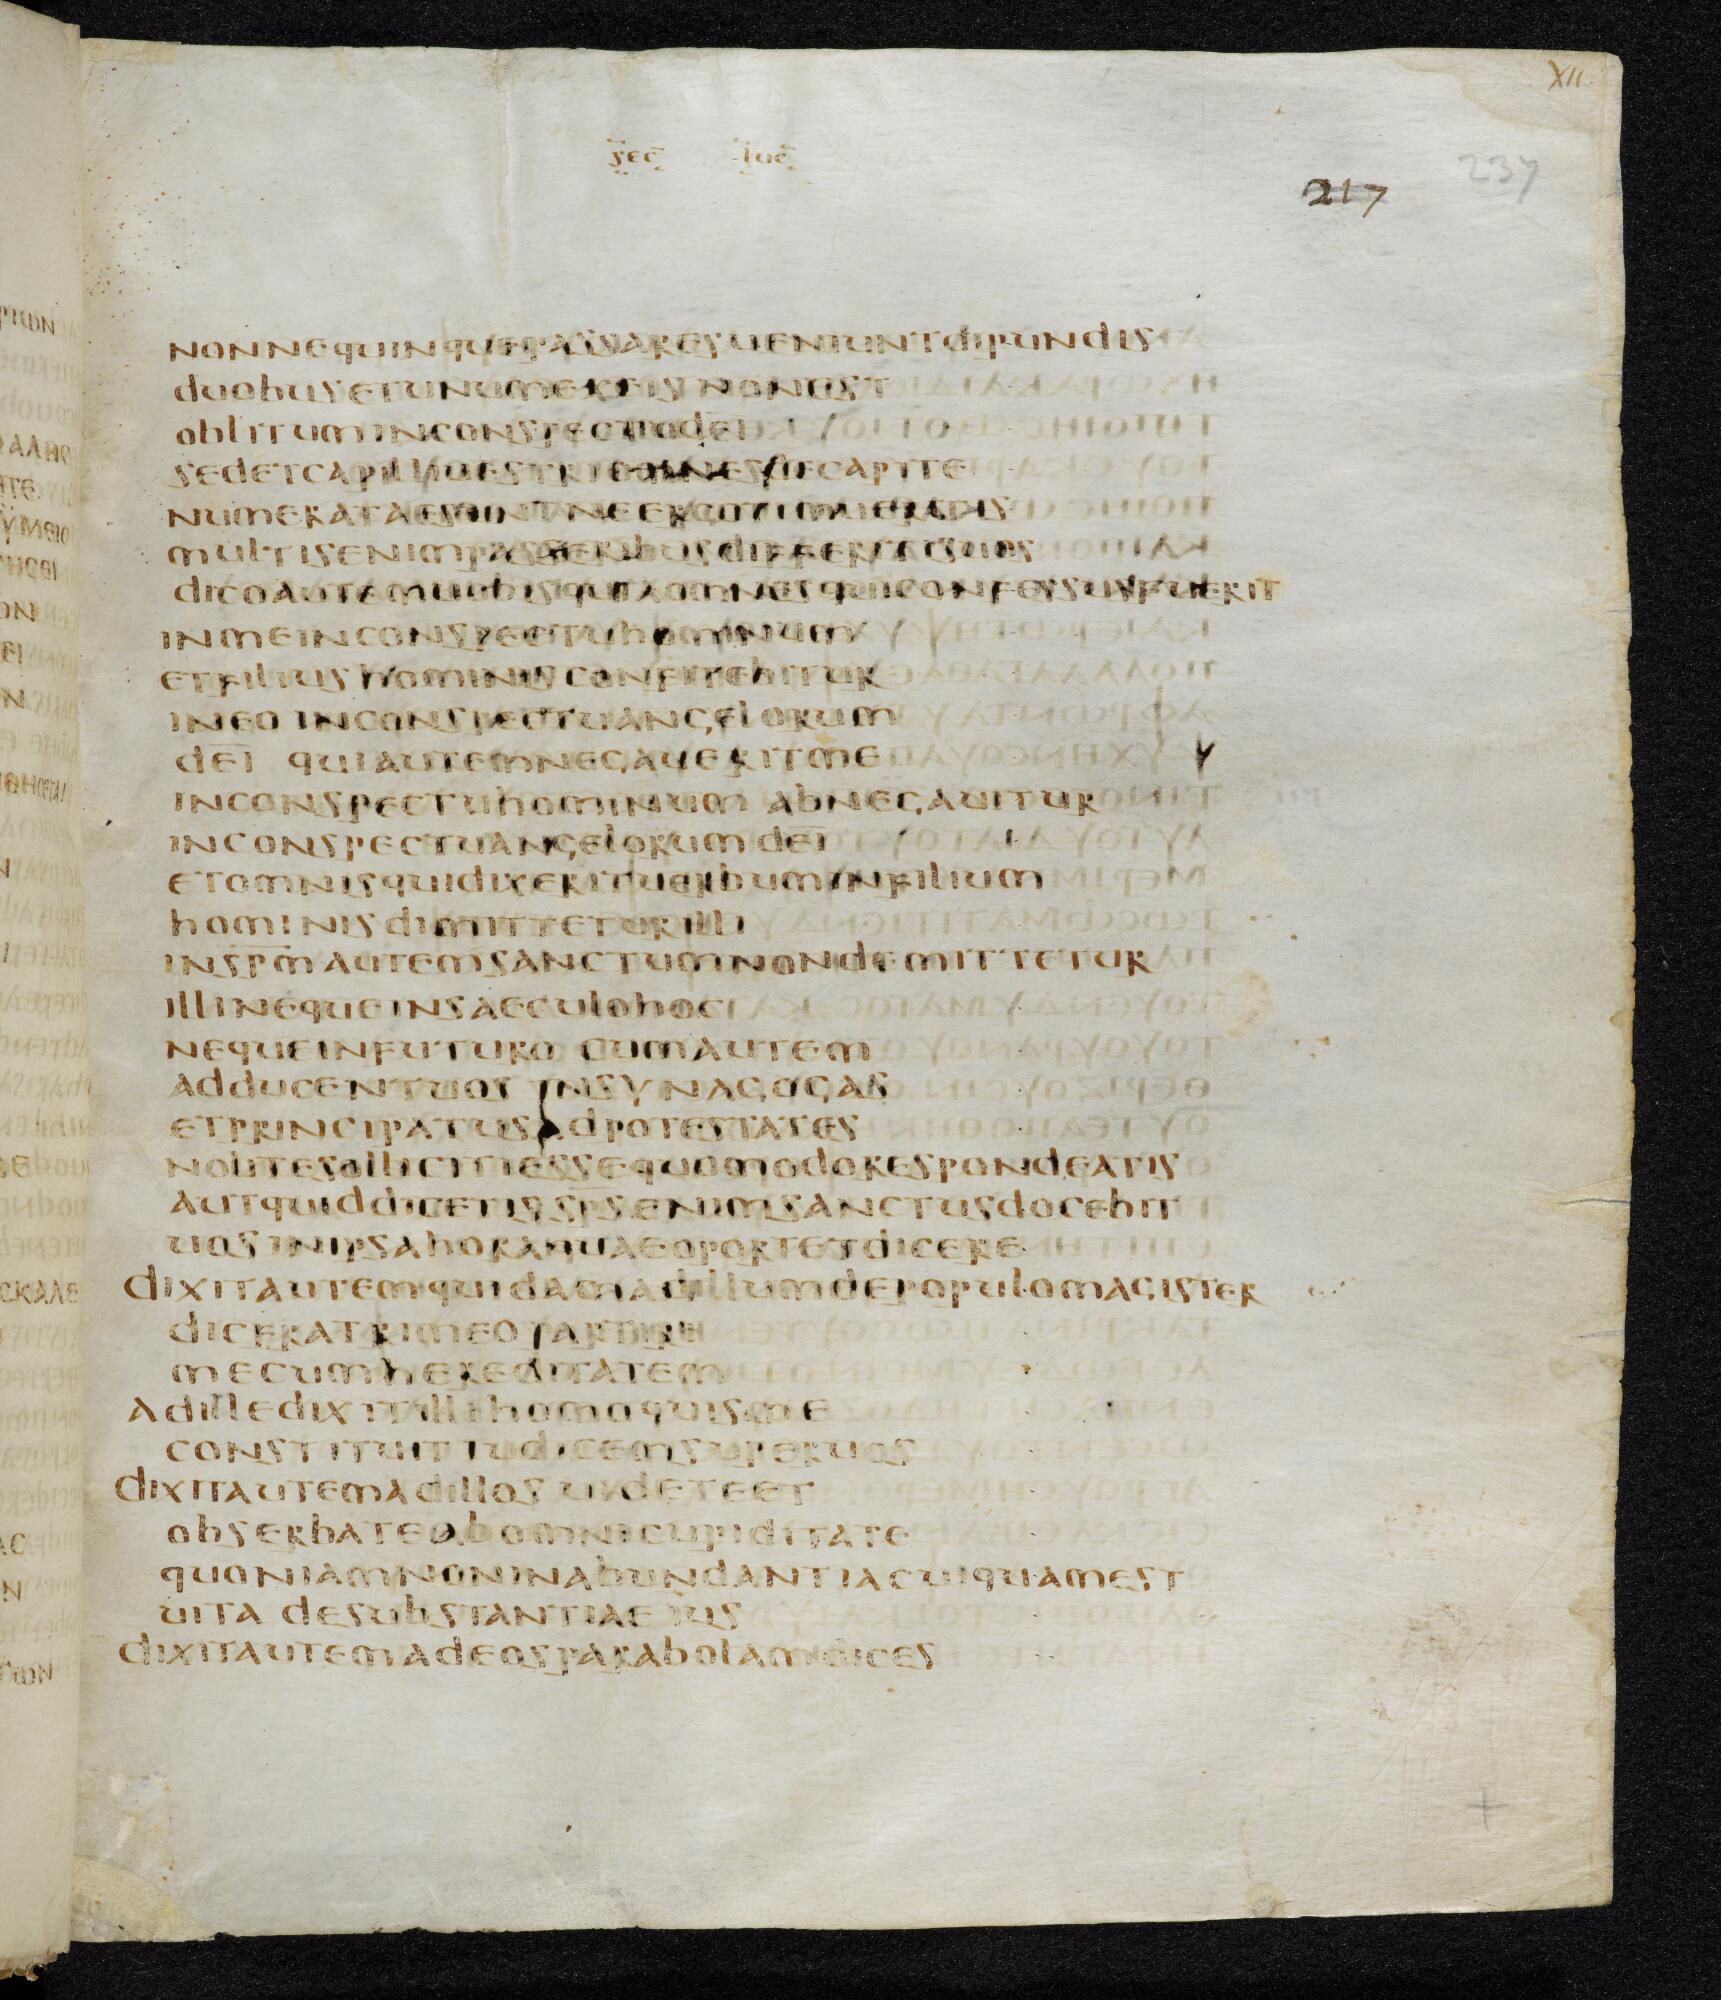 XII
sec luc
237
217
nonnequinquepassaresueniuntdipundis
duobusetunumexeisnonest
oblituminconspectudei
sedetcapilliuestriomnesdecapite
numerataesuntneergotimueratis
multisenimpasseribusdiffertisuos
dicoautemuobisquiaomnesquiconfessusfuerit
inmeinconspectuhominum
etfiliushominisconfitebitur
ineoinconspectuangelorum
dei quiautemnegaueritme
inconspectuhominum abnegauitur
inconspectuangelorumdei
etomnisquidixerituerbuminfilium
hominisdimittetturilli
inspmautemsanctumnondemittetur
illinequeinsaeculohoc
nequeinfuturo cumautem
adducentuos insynagogas
etprincipatusadpotestates
nolitesollicitiessequomodorespondeatis
autquiddicetisspsenimsanctusdocebit
uosinipsahoraquaeoportetdicere
dixitautemquidamadillumdepopulomagister
dicfratrimeopartiri
mecumhereditatem
adilledixitillihomoquisme
constituitiudicemsuperuos
dixitautemadillos uideteet
obserbateabomnicupiditate
quoniamnoninabundantiacuiquamest
uita desubstantiaeius
dixitautemadeosparabolamdices